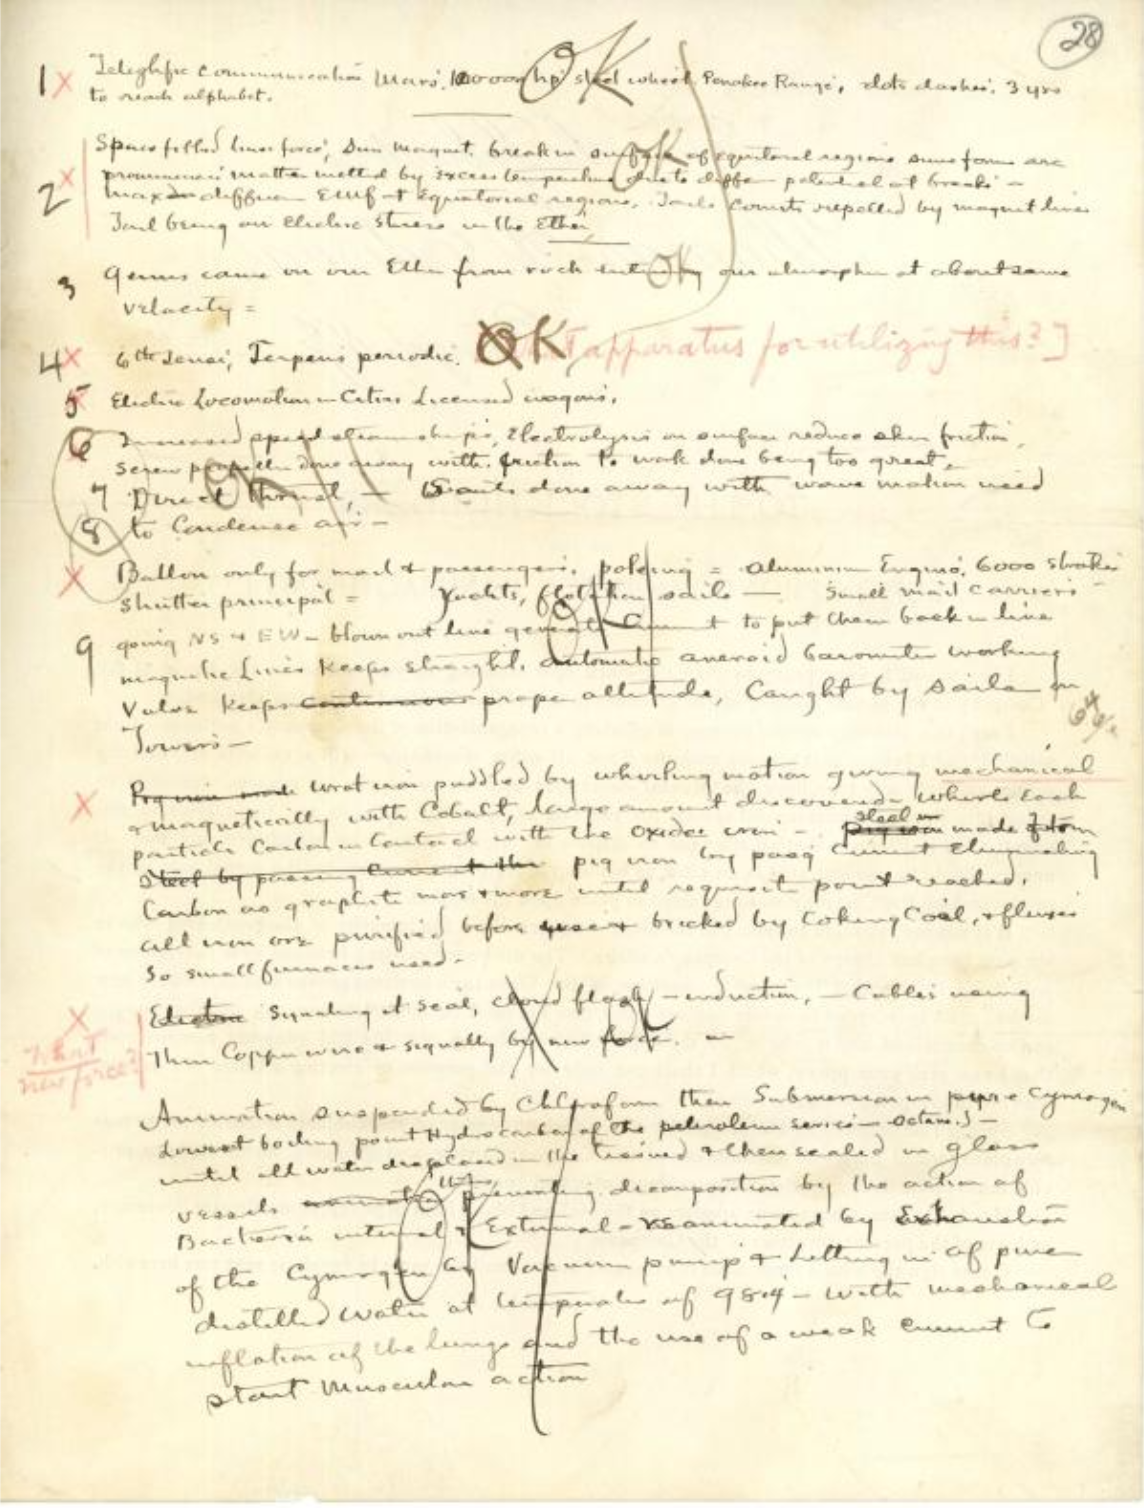 28
1 x Teleghfic communication Mars. 100000 hp steel wheel Penokee Range, dots dashes. 3 yrs
to reach alphabet.
OK
Space filled lines force, Sun magnet. break in surface of equitoral regions suns forms are
prominences matter melted by excess temperature due to differ potential at breaks –
2 x max differn EMF at Equatorial regions. Tails Comets repelled by magnet lines
Tail being an electric stress in the Ether
OK
3 Germs came on our Eth from rock our atmosphe at about same
velocity =
OK
4 x 6th sense, Terpens periodic. OK apparatus for utilizing this?]
5 x Electric Locomotion in Cities Licensed wagons.
6 Increased speed steamships, Electrolysis on surface reduce skin friction,
screw propelln done away with. friction to work done being too great –
7 Direct thrust, – done away with wave motion used
8 to Condense air –
OK
x Ballon only for mail & passengers. = aluminium Engins. 6000 strokes
shutter principal = Yachts, flotation sails — Small mail carriers
9 going NS & EW – blown out line current to put them back in line
magnetic Lines keeps straight. automatic aneroid barometer working
Valve keeps continuous prope altitude, Caught by sails on
Towers –
OK
x Pig iron made wrot iron puddled by whirling motion giving mechanical
& magnetically with Cobalt, large amount discovered – where each
particle Carbon in Contact with the oxide iron – steel pig iron made from
Steel by passing Current thro pig iron by passg Current
Carbon as graphite more & more until requisit point reached.
all iron ore purified before bricked by Coking Coal, & fluxes
So small furnaces used –
x Electric Signaling at sea, cloud flash – induction, – Cables using
Thin Copper wire & signally by new force.
OK
What
new force?
Animation suspended by Chloroform then Submersion in pure Cymogen
Lowest boiling point Hydrocarbon of the petroleum series – octane) –
until all water displaced in the & then sealed in glass
vessels preventing decomposition by the action of
Bacteria internal & External – reanimated by Exhaustion
of the Cymogen by Vacuum pump & letting in of pure
distilled water at temperature of 98.4 – with mechanical
inflation of the lungs and the use of a weak current to
start muscular action
OK